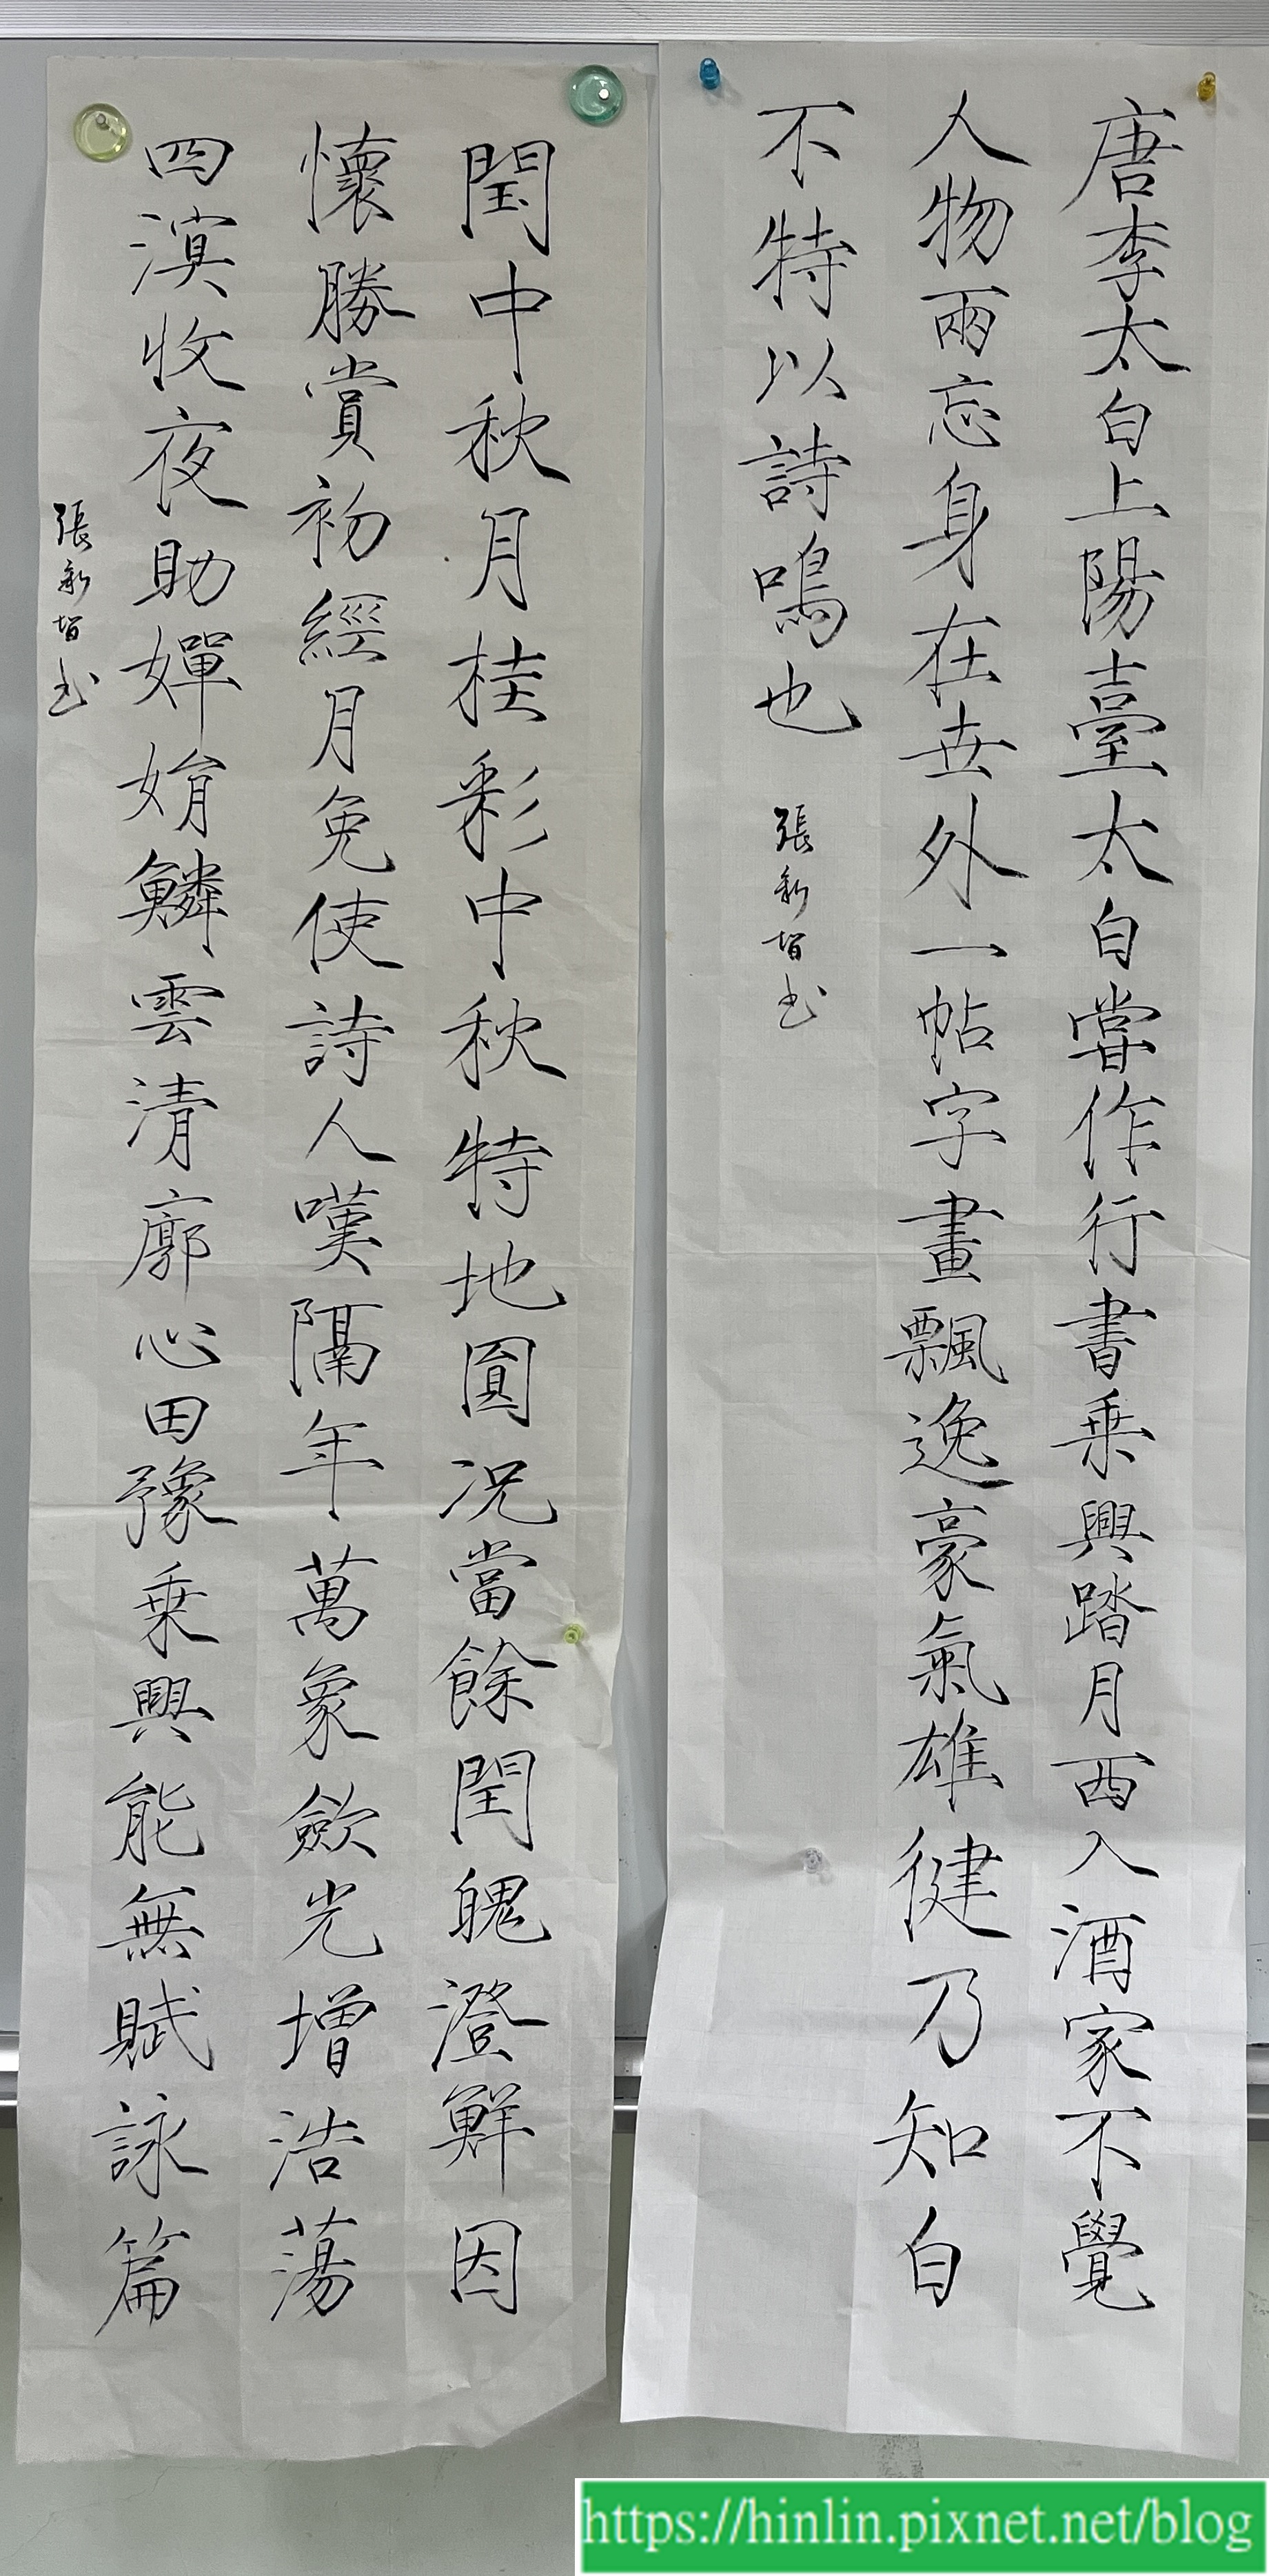 唐李太白上陽臺太白嘗作行書乗興踏月西入酒家不覺
人物兩忘身在世外一帖字畫飄逸豪氣雄健乃知白
不特以詩鳴也
張新智书
閏中秋月桂彩中秋特地圓况當餘閏魄澄鮮因
懷勝賞初經月免使詩人嘆隔年萬象斂光增浩蕩
四溟收夜助嬋娟鱗雲清廓心田豫乗興能無賦詠篇
張新智书
https://hinlin.pixnet.net/blog